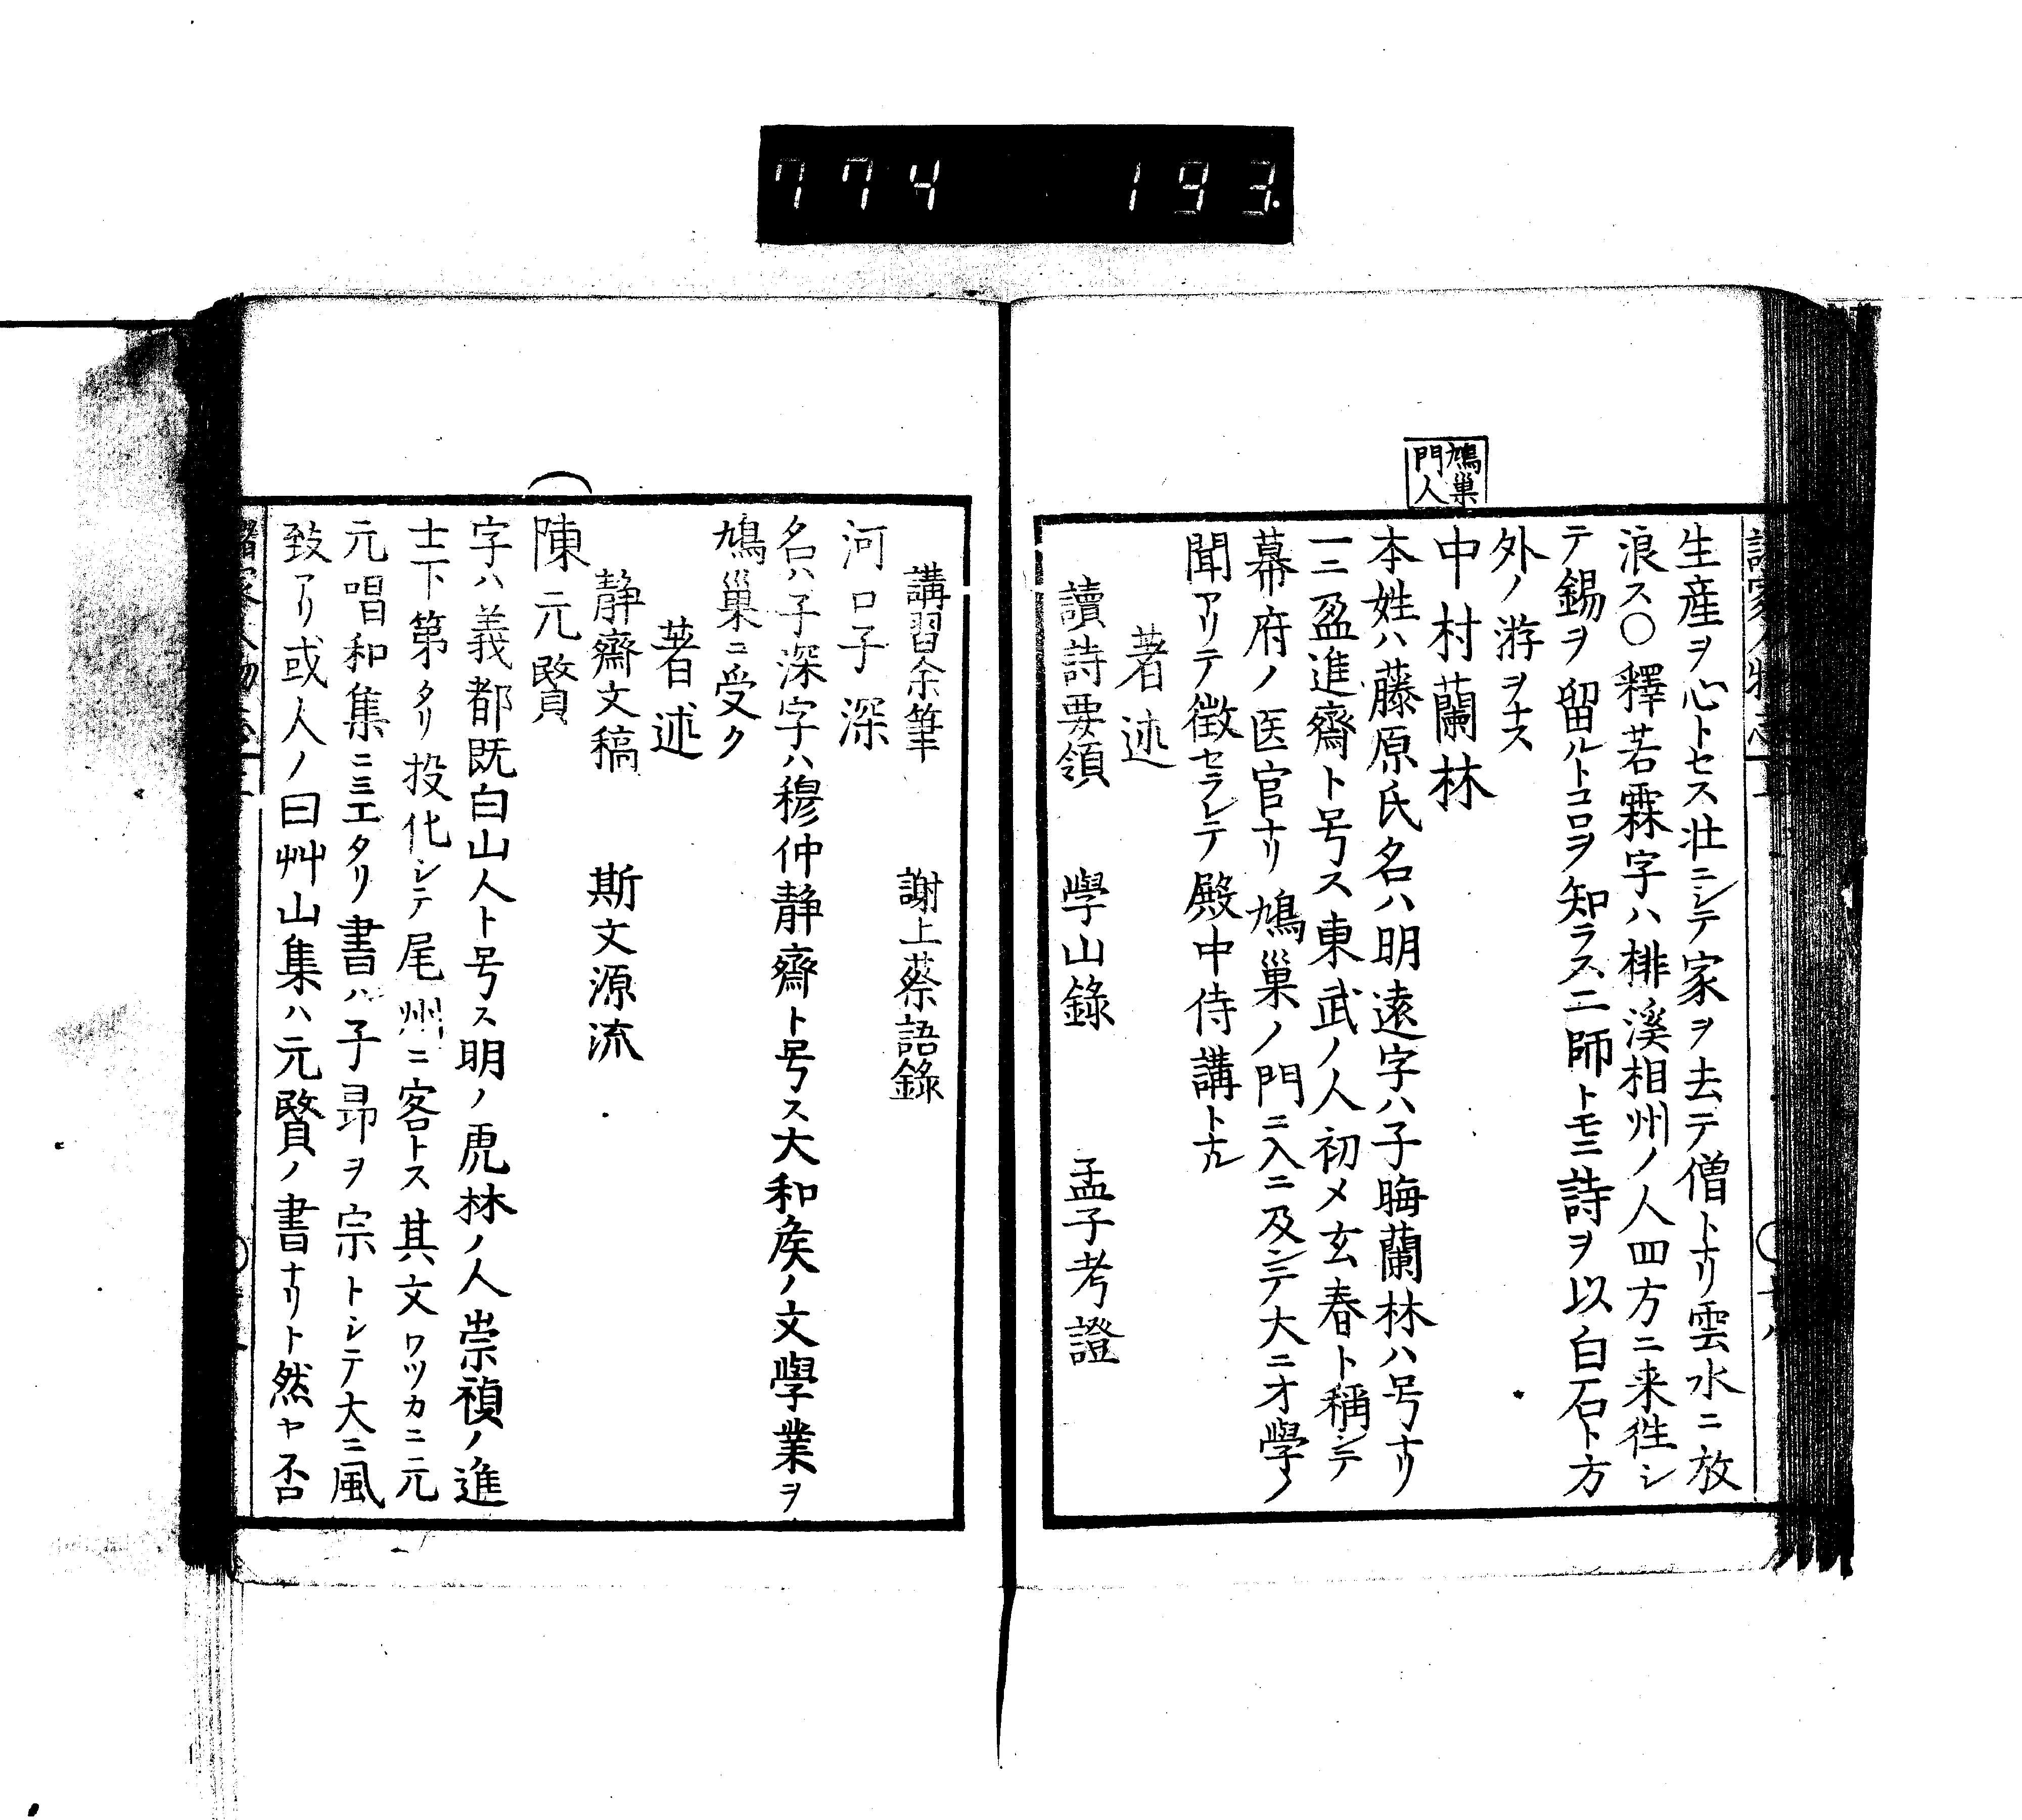 774 193.
生産ヲ心トセス壮ニシテ家ヲ去テ僧トナリ雲水ニ放
浪ス〇釋若霖字ハ桃溪相州ノ人四方ニ来徃シ
テ錫ヲ留ルトコロヲ知ラス二師トモニ詩ヲ以白石ト方
外ノ游ヲナス
鳩巣
門人
中村蘭林
本姓ハ藤原氏名ハ明遠字ハ子晦蘭林ハ号ナリ
一ニ盈進齋ト号ス東武ノ人初メ玄春ト稱シテ
幕府ノ医官ナリ鳩巣ノ門ニ入ニ及シテ大ニ才學ノ
聞アリテ徴セラレテ殿中侍講トナル
著述
讀詩要領 學山錄 孟子考證
講習余筆 謝上蔡語錄
河口子深
名ハ子深字ハ穆仲静齋ト号ス大和矦ノ文學業ヲ
鳩巣ニ受ク
著述
静齋文稿 斯文源流
陳元贇
字ハ義都既白山人ト号ス明ノ虎林ノ人崇禎ノ進
士下第タリ投化シテ尾州ニ客トス其文ワツカニ元
元唱和集ニミエタリ書ハ子昻ヲ宗トシテ大ニ風
致アリ或人ノ曰艸山集ハ元贇ノ書ナリト然ヤ否